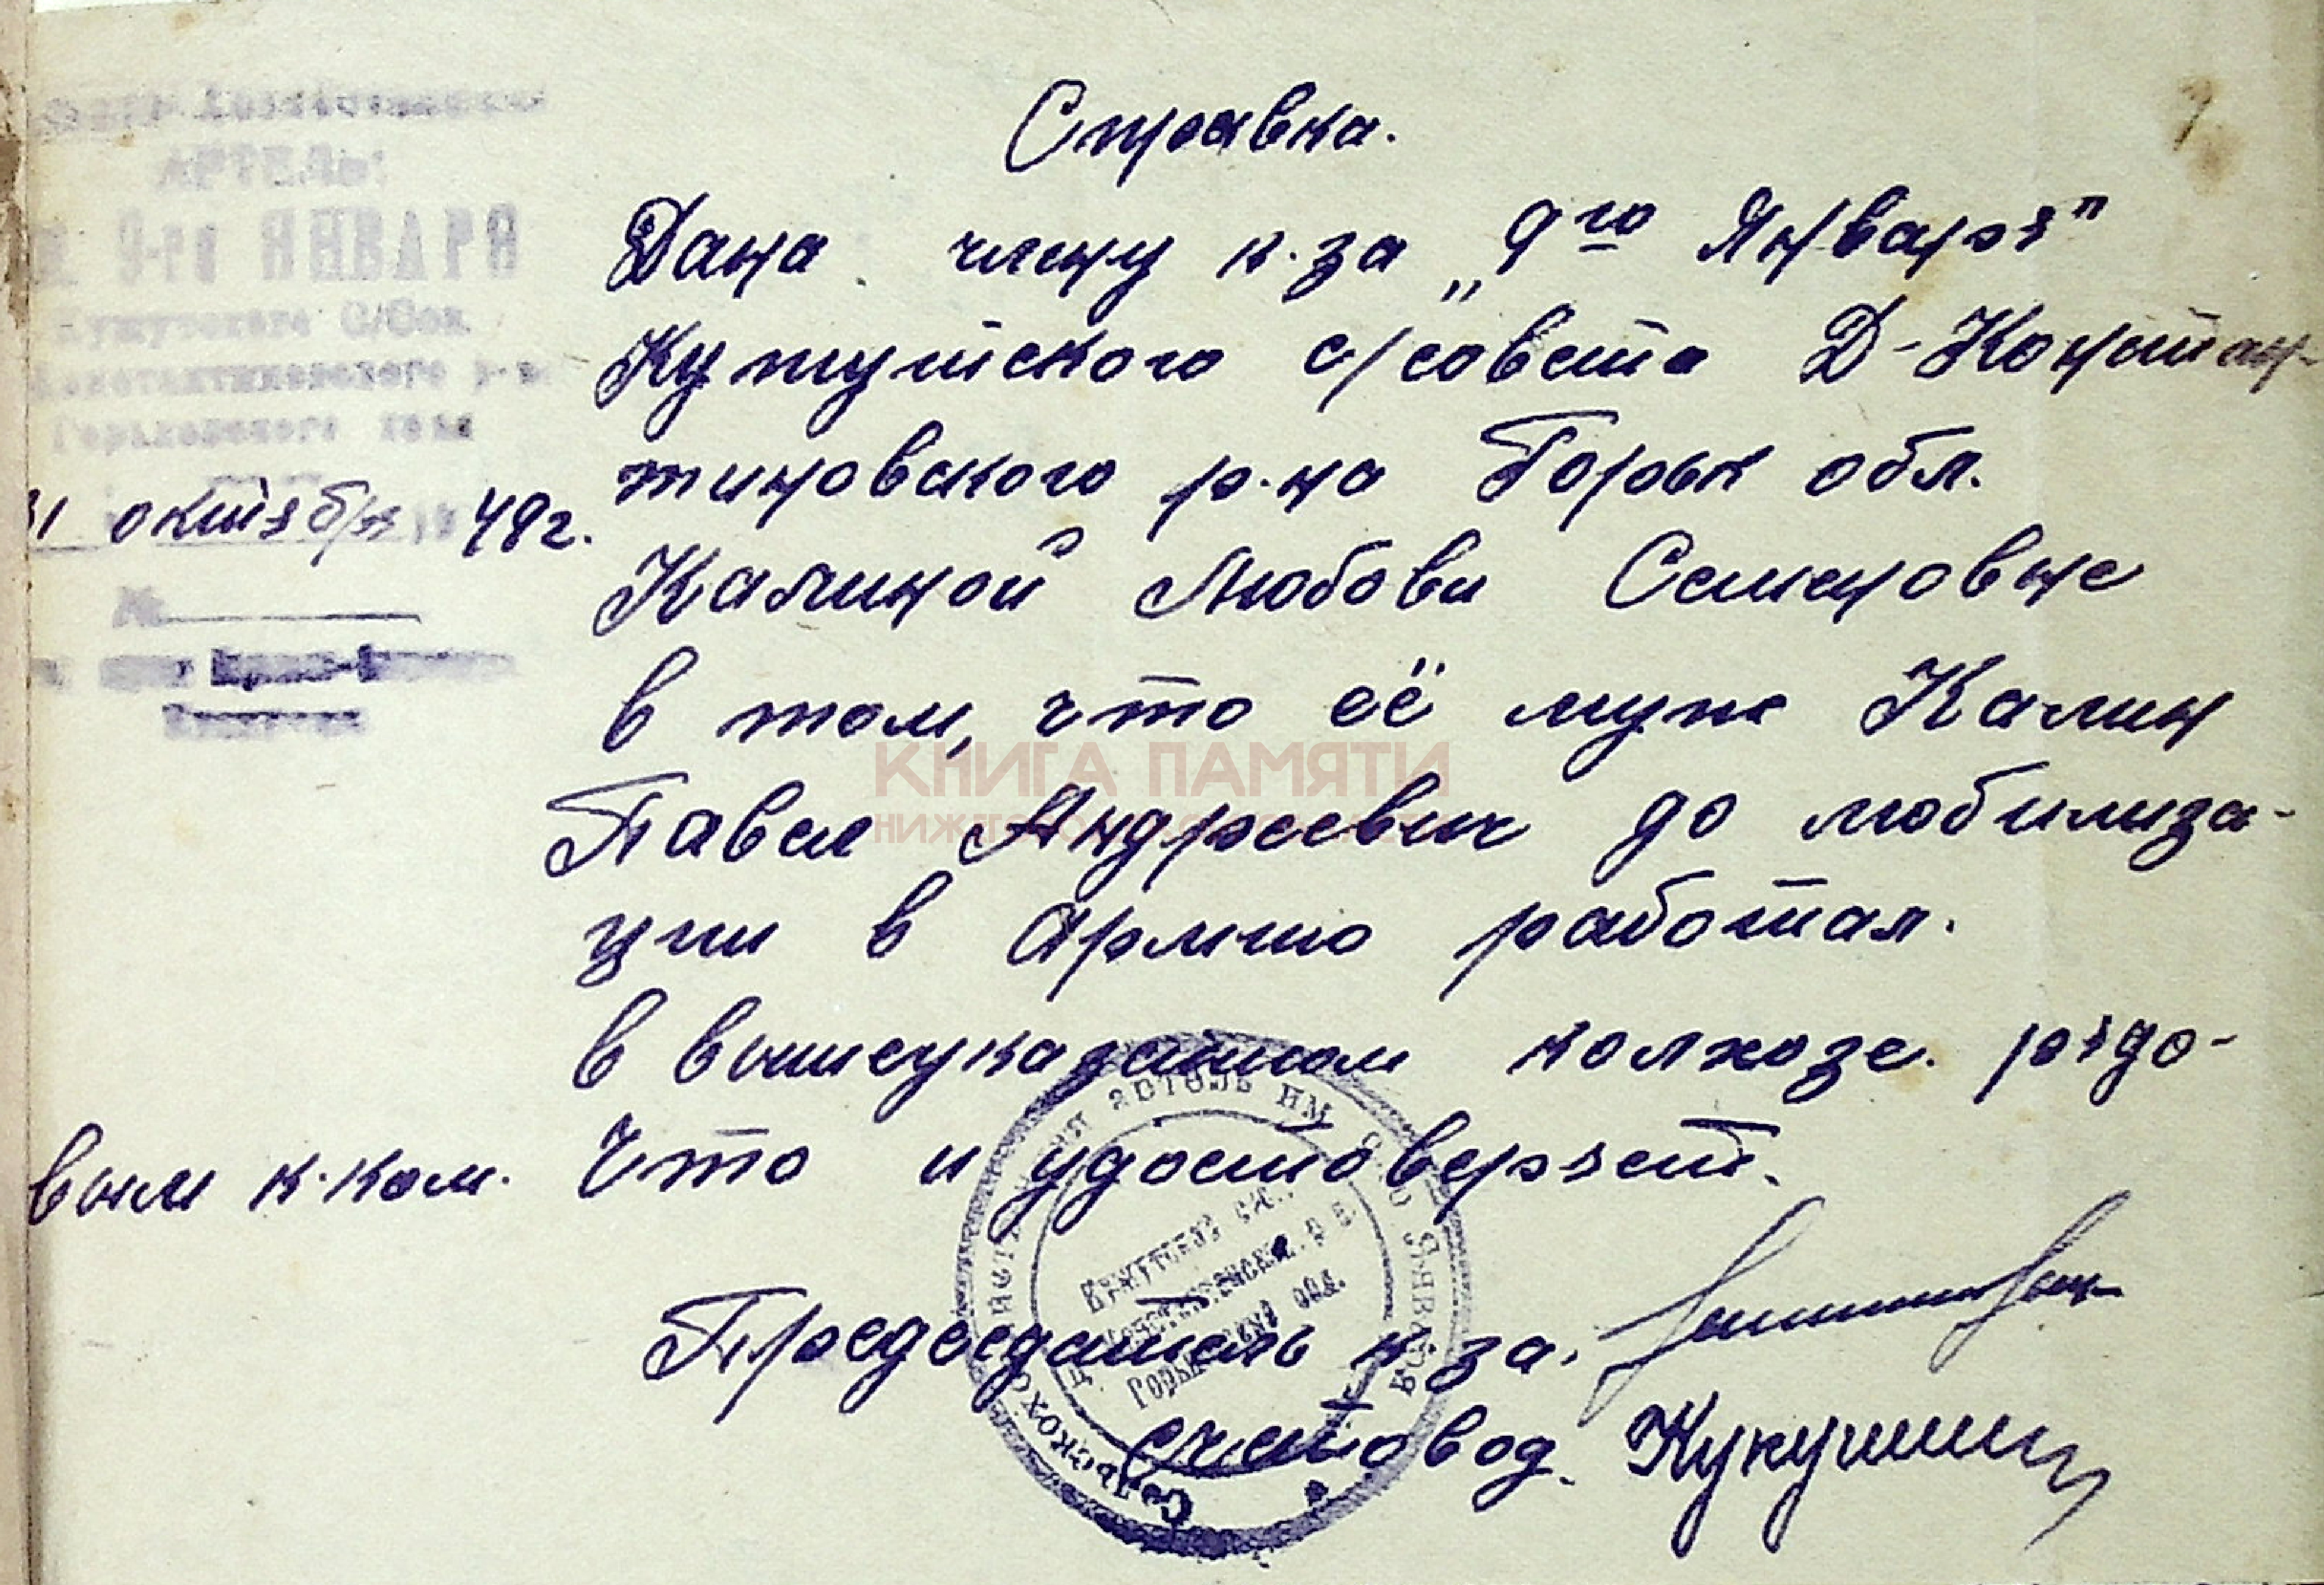 Справка.
АРТЕЛЬ
9-го ЯНВАРЯ
С/Сов.
р-на
Горьковского края
31 октября 48г.
№
Дана члену к-за „9го Января"
Кужутского с/совета Д-Констан-
тиновского р-на Горьк обл.
Калиной Любови Семеновне
в том, что её муж Калин
Павел Андреевич до мобилиза-
ции в Армию работал.
в вышеуказанном колхозе. рядо-
вым к-ком. Что и удостоверяет.
Председатель к-за.
счетовод. Кукушкин
Сельскохозяйственная артель им 9-го Января
Горьковской обл.
КНИГА ПАМЯТИ